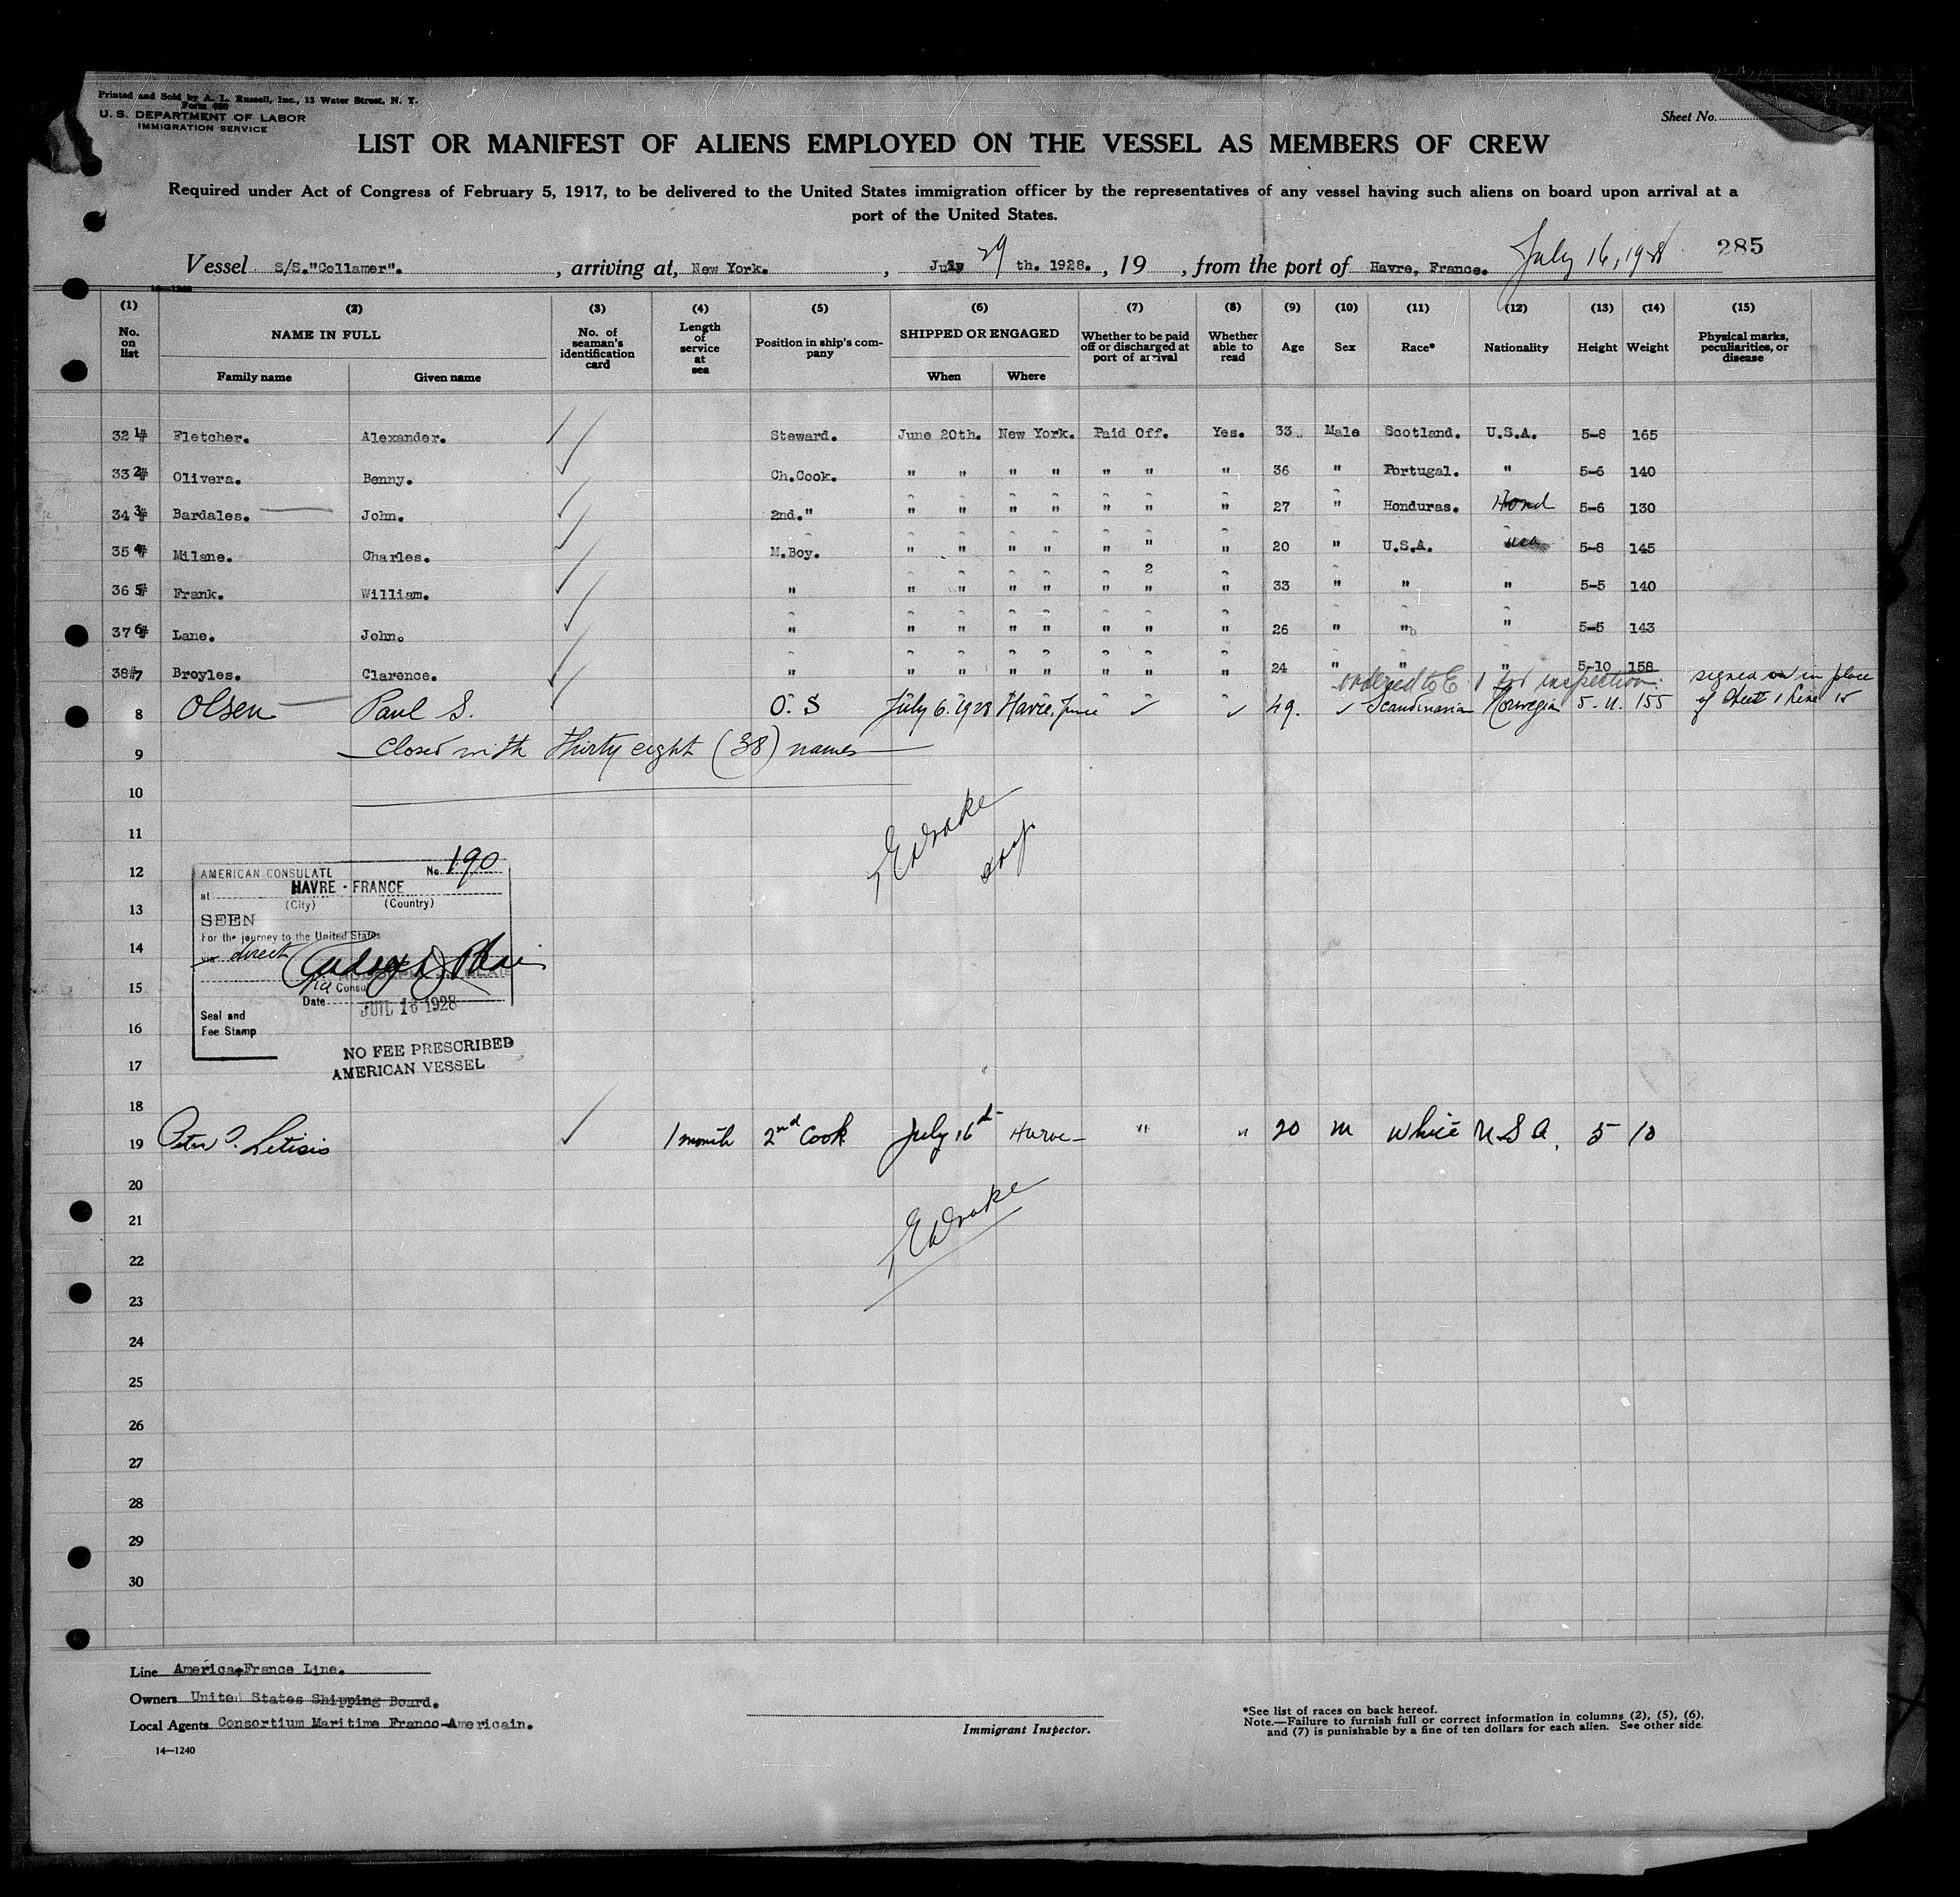 Printed and Sold by A. L. Russell, Inc., 13 Water Street, N. Y.
Form 680
U. S. DEPARTMENT OF LABOR
IMMIGRATION SERVICE
Sheet No.
LIST OR MANIFEST OF ALIENS EMPLOYED ON THE VESSEL AS MEMBERS OF CREW
Required under Act of Congress of February 5, 1917, to be delivered to the United States immigration officer by the representatives of any vessel having such aliens on board upon arrival at a
port of the United States.
Vessel S/S."Collamer". , arriving at, New York. , July 29 th. 1928. , 19 , from the port of Havre, France. July 16, 1928 285
(1) (2) (3) (4) (5) (6) (7) (8) (9) (10) (11) (12) (13) (14) (15)
No. on list NAME IN FULL Family name Given name No. of seaman's identification card Length of service at sea Position in ship's company SHIPPED OR ENGAGED When Where Whether to be paid off or discharged at port of arrival Whether able to read Age Sex Race* Nationality Height Weight Physical marks, peculiarities, or disease
32 1 Fletcher. Alexander. Steward. June 20th. New York. Paid Off. Yes. 33 Male Scotland. U.S.A. 5-8 165
33 2 Olivera. Benny. Ch.Cook. " " " " " " " 36 " Portugal. " 5-6 140
34 3 Bardales. John. 2nd." " " " " " " " 27 " Honduras. Hond 5-6 130
35 4 Milane. Charles. M.Boy. " " " " " " " 20 " U.S.A. usa 5-8 145
36 5 Frank. William. " " " " " " " " 33 " " " 5-5 140
37 6 Lane. John. " " " " " " " " 26 " " " 5-5 143
38 7 Broyles. Clarence. " " " " " " " " 24 " " " 5-10 158
ordered to E I for inspection.
8 Olsen Paul S. O. S July 6. 1928 Havre, France ✓ ✓ 49. ✓ Scandinavian Norwegian 5-11. 155 signed on in place of Sheet 1 line 15
9 Closed with thirty eight (38) names
10
11
12
13
14
15
16
17
18
AMERICAN CONSULATE No. 190
at HAVRE - FRANCE
(City) (Country)
SEEN
For the journey to the United States
via direct
Vice Consul
Date JUIL 16 1928
Seal and
Fee Stamp
NO FEE PRESCRIBED
AMERICAN VESSEL
19 Peter Letisis 1 month 2nd Cook July 16th Havre " " 20 m white U.S.A. 5 10
20
21
22
23
24
25
26
27
28
29
30
Line America-France Line.
Owners United States Shipping Board.
Local Agents Consortium Maritime Franco-Americain.
14—1240
Immigrant Inspector.
*See list of races on back hereof.
Note.—Failure to furnish full or correct information in columns (2), (5), (6),
and (7) is punishable by a fine of ten dollars for each alien. See other side.